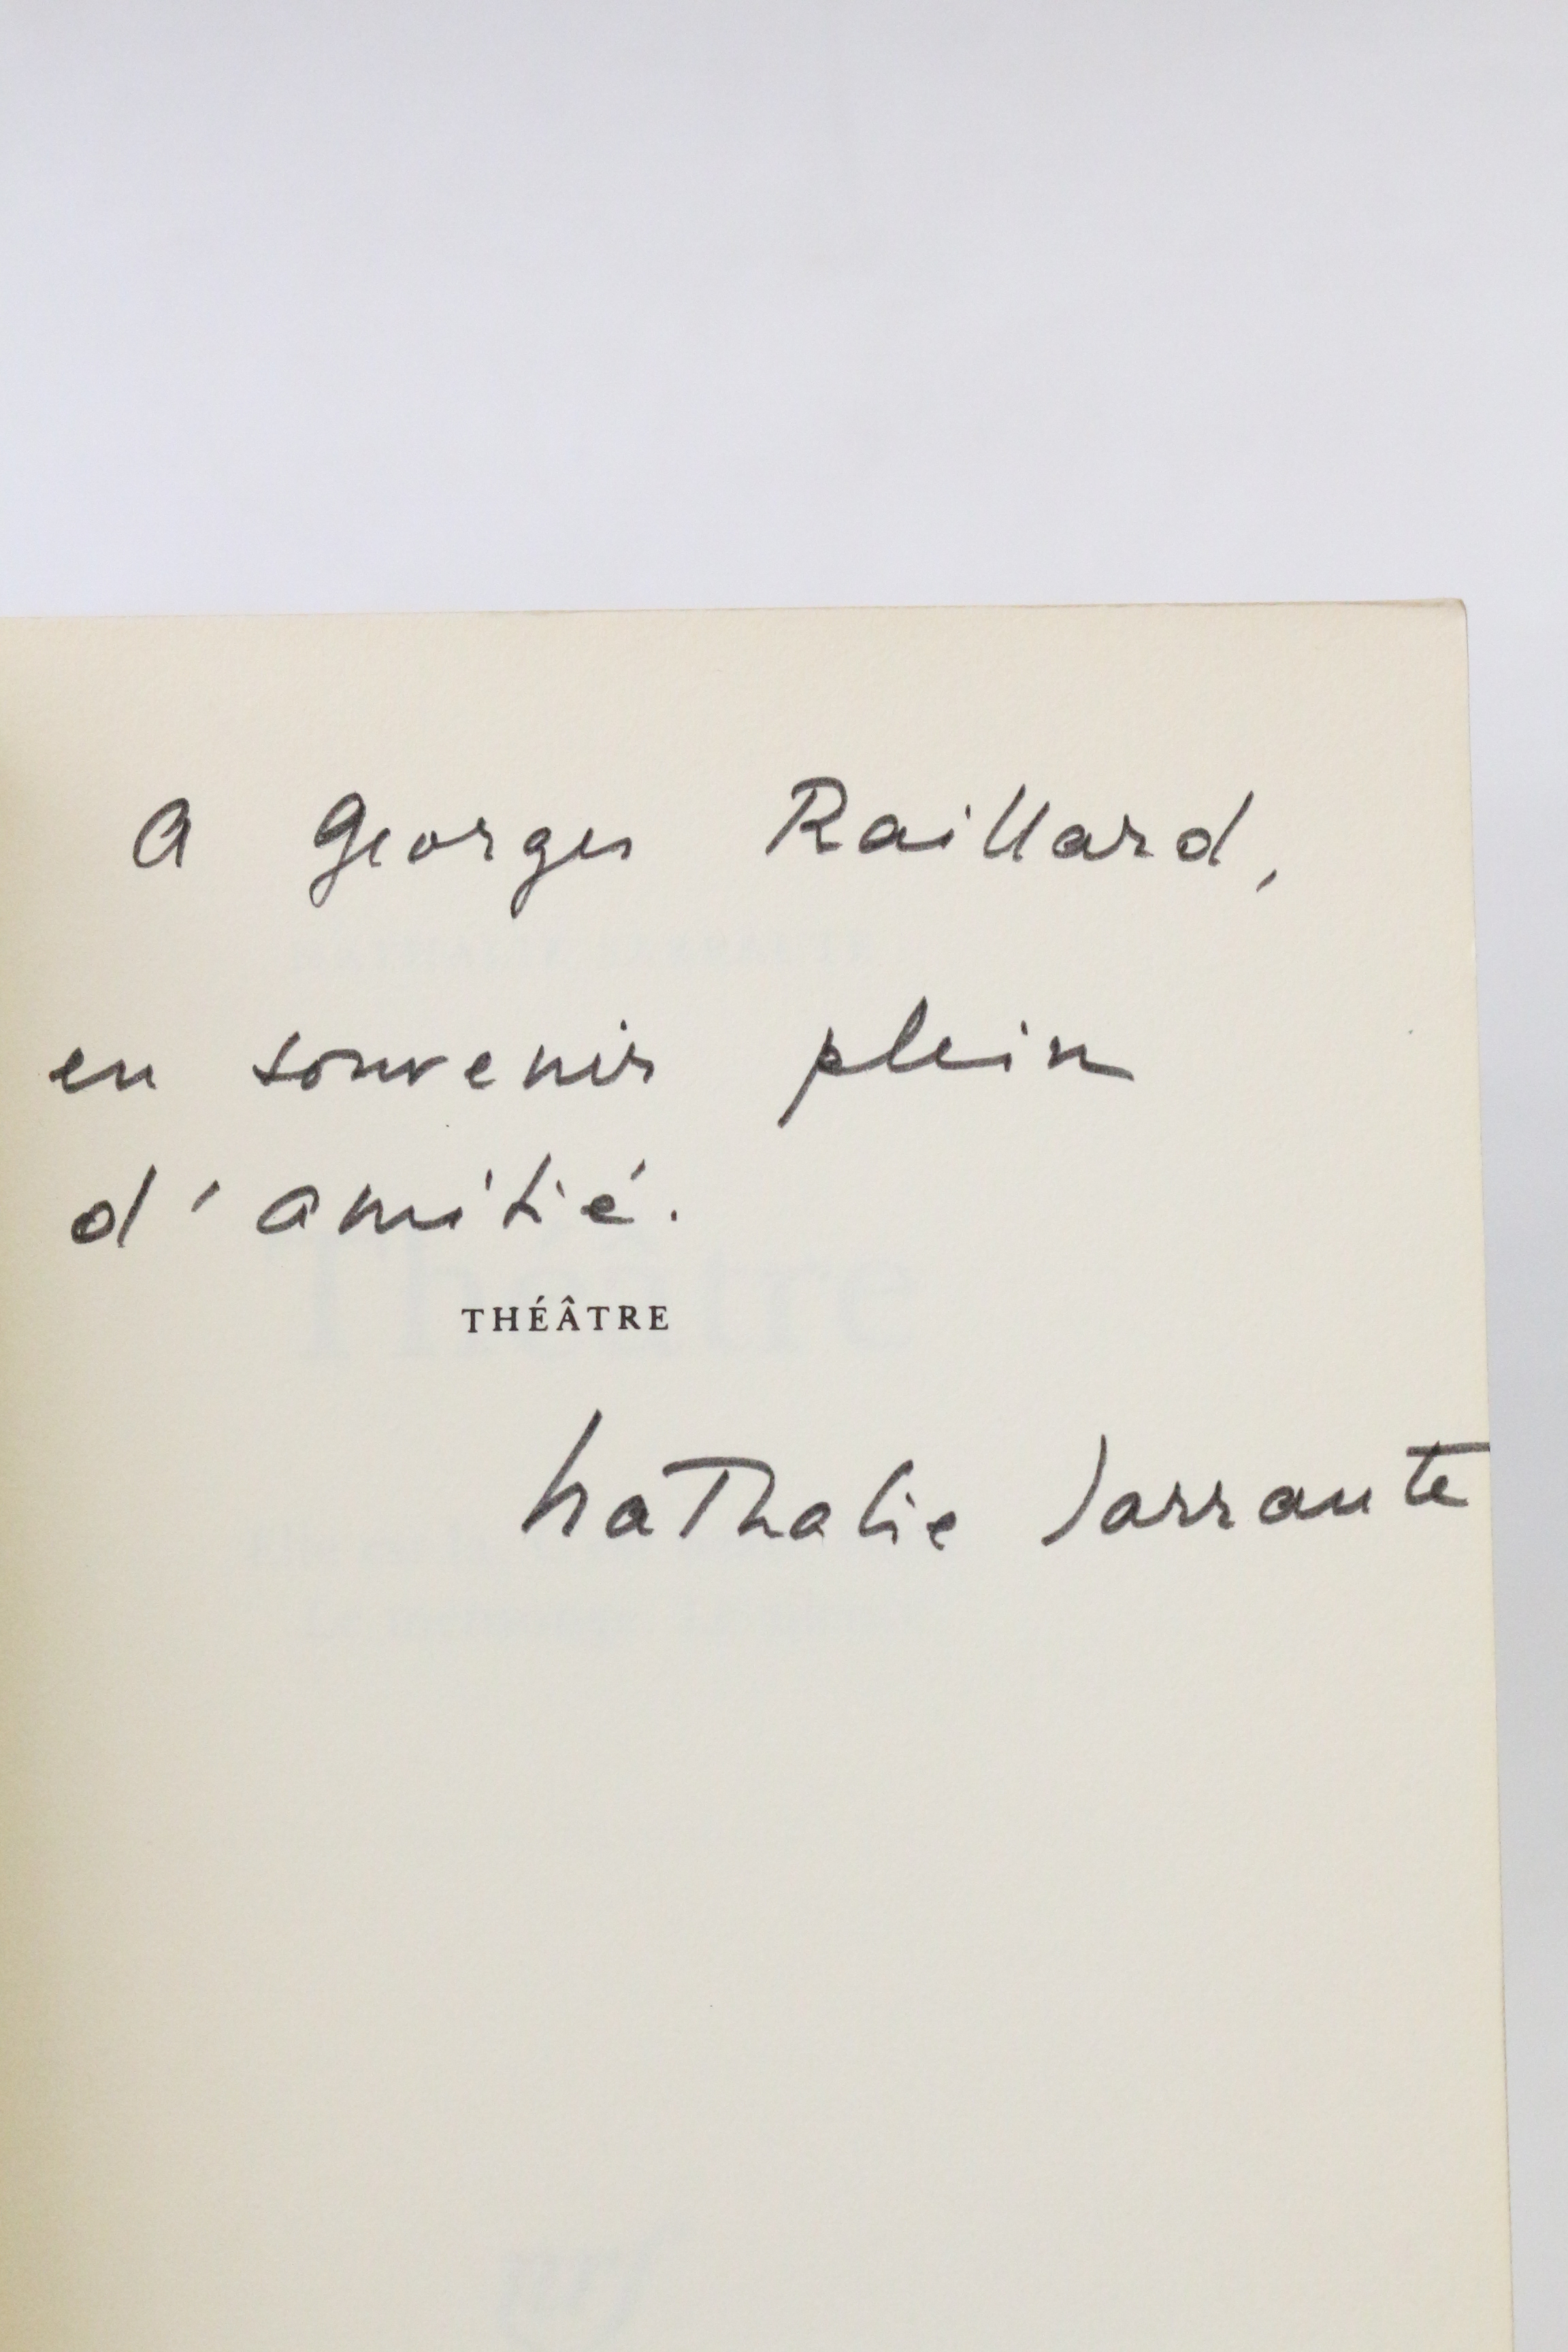 A Georges Raillard,
en souvenir plein
d'amitié.
THÉÂTRE
Nathalie Sarraute